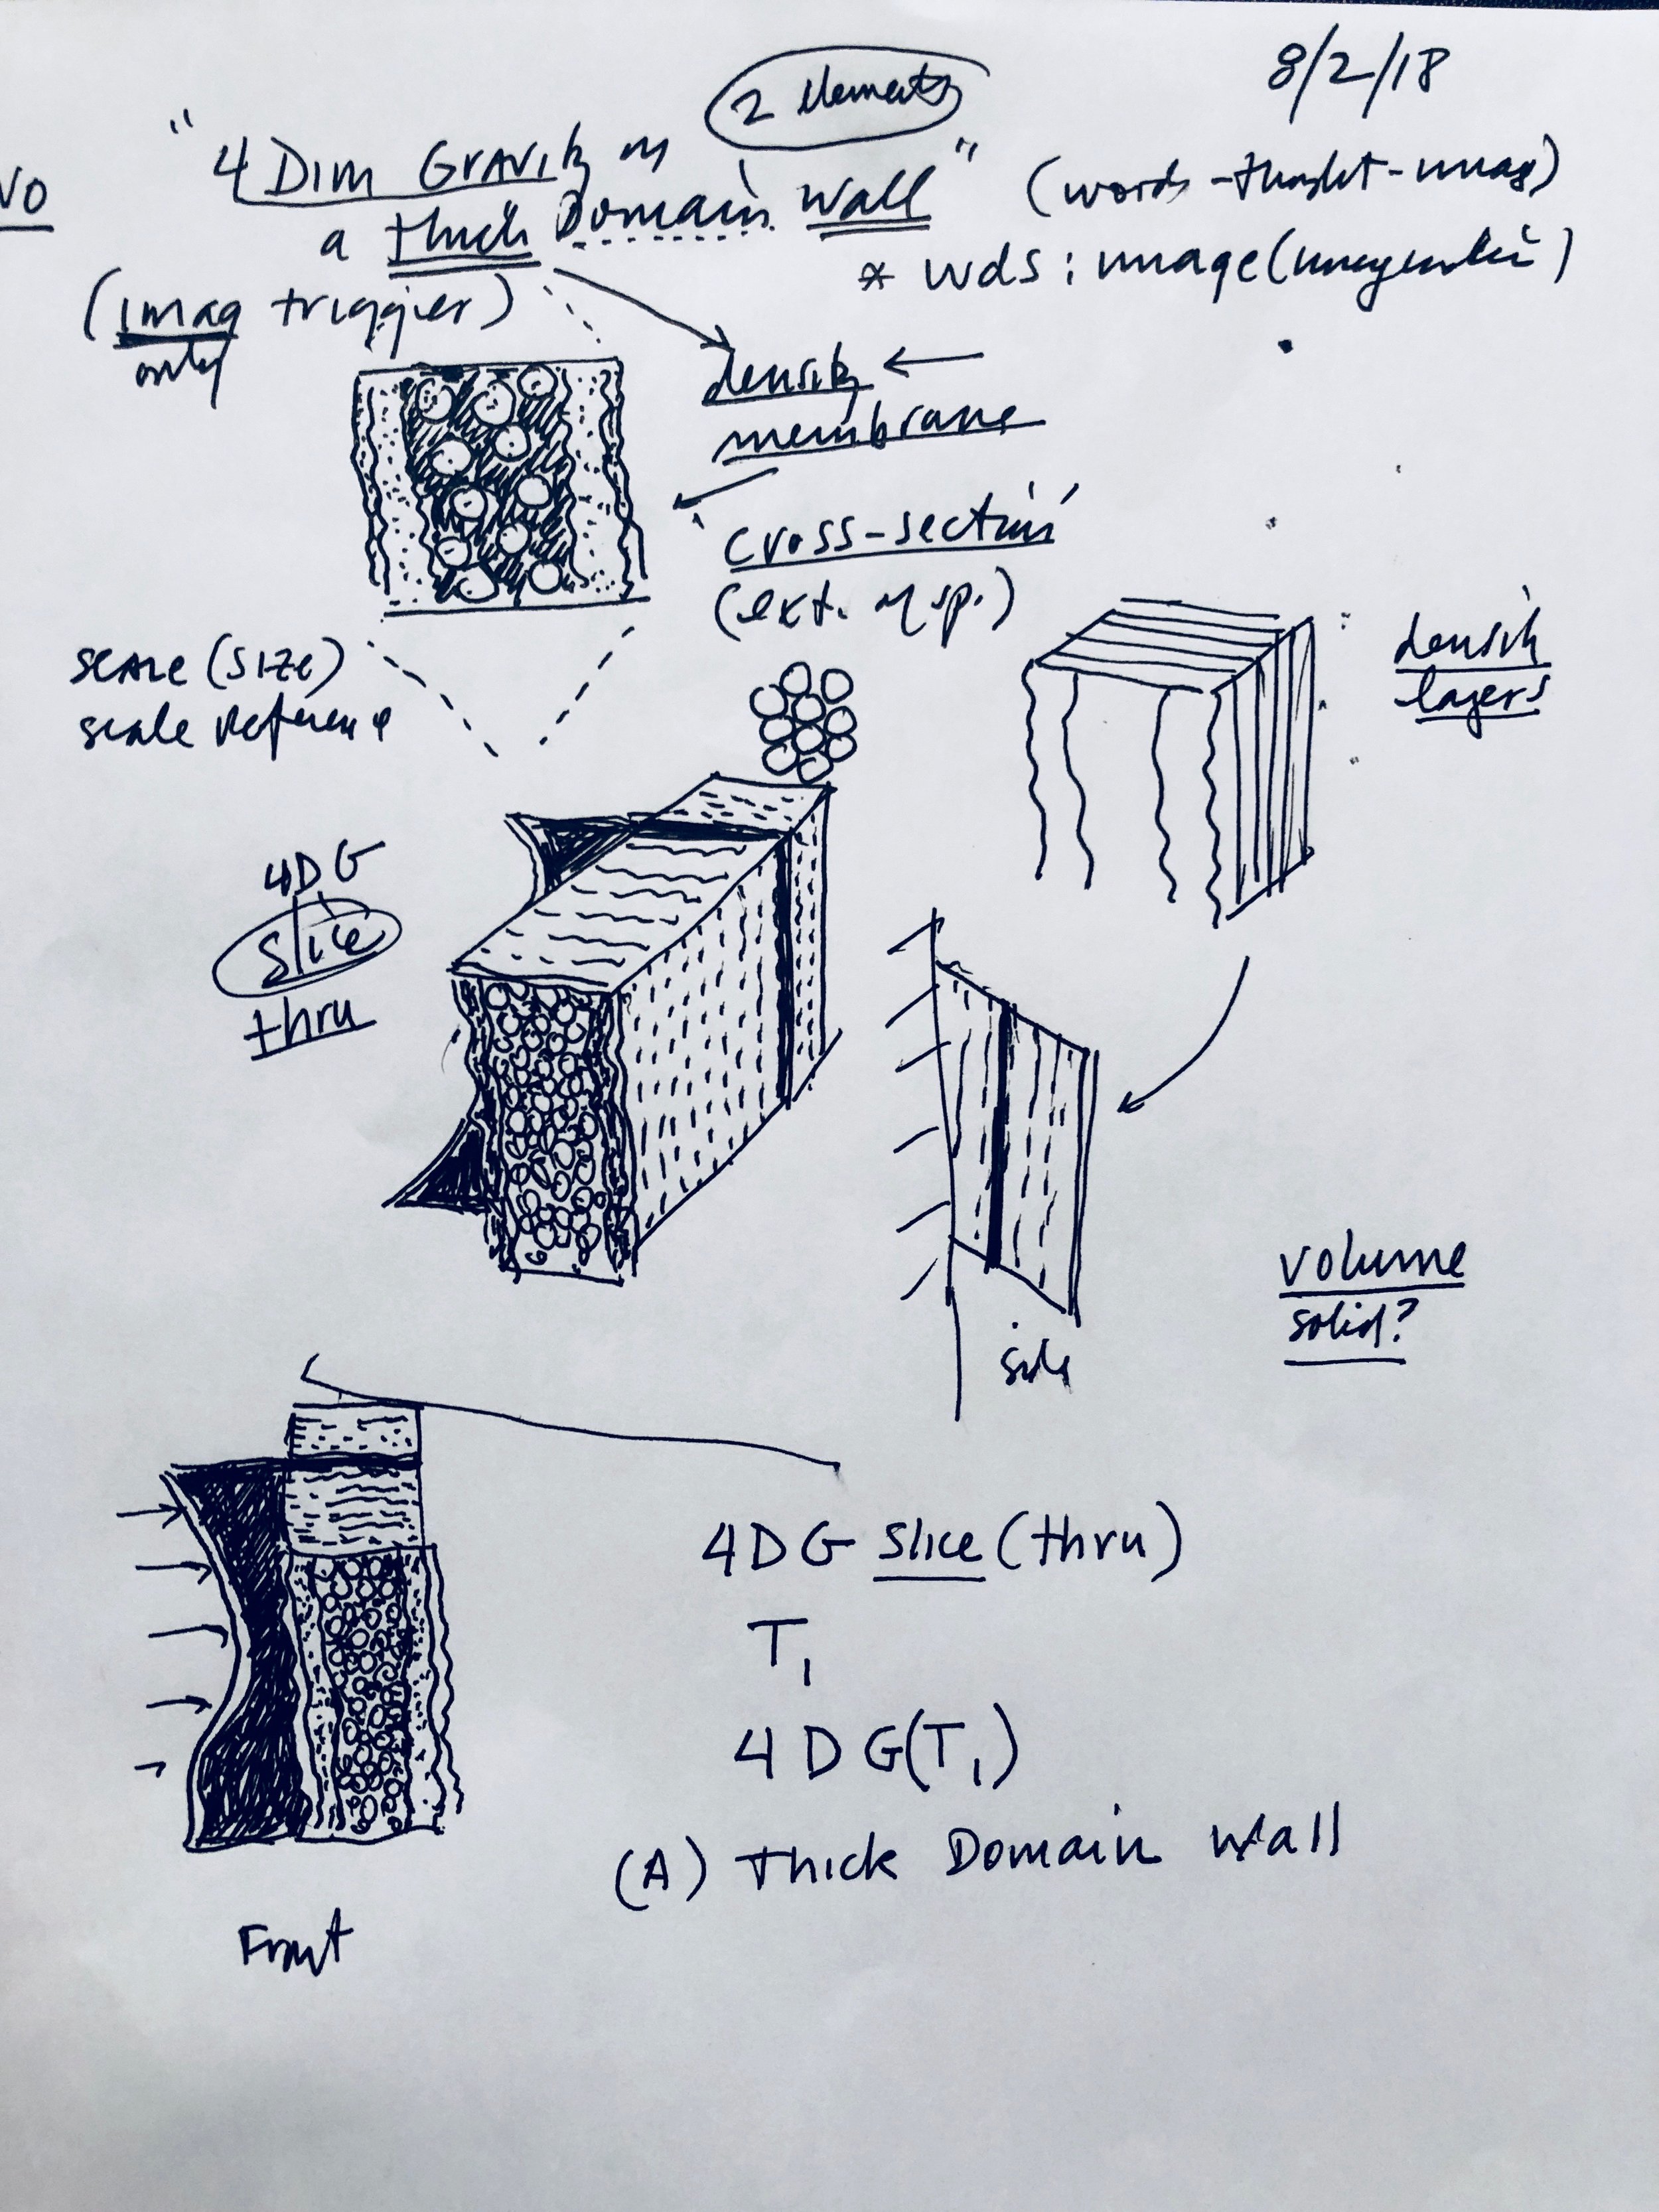 8/2/18
2 elements
VO
"4 Dim Gravity on
a thick Domain Wall"
(words-thought-imag)
* wds : image (imagination)
(imag trigger)
only
density
membrane
cross-section
(ext. of sp.)
scale (size)
scale reference
density
layers
4DG
slice
thru
side
volume
solid?
4DG slice (thru)
T1
4DG(T1)
(A) thick Domain wall
Front